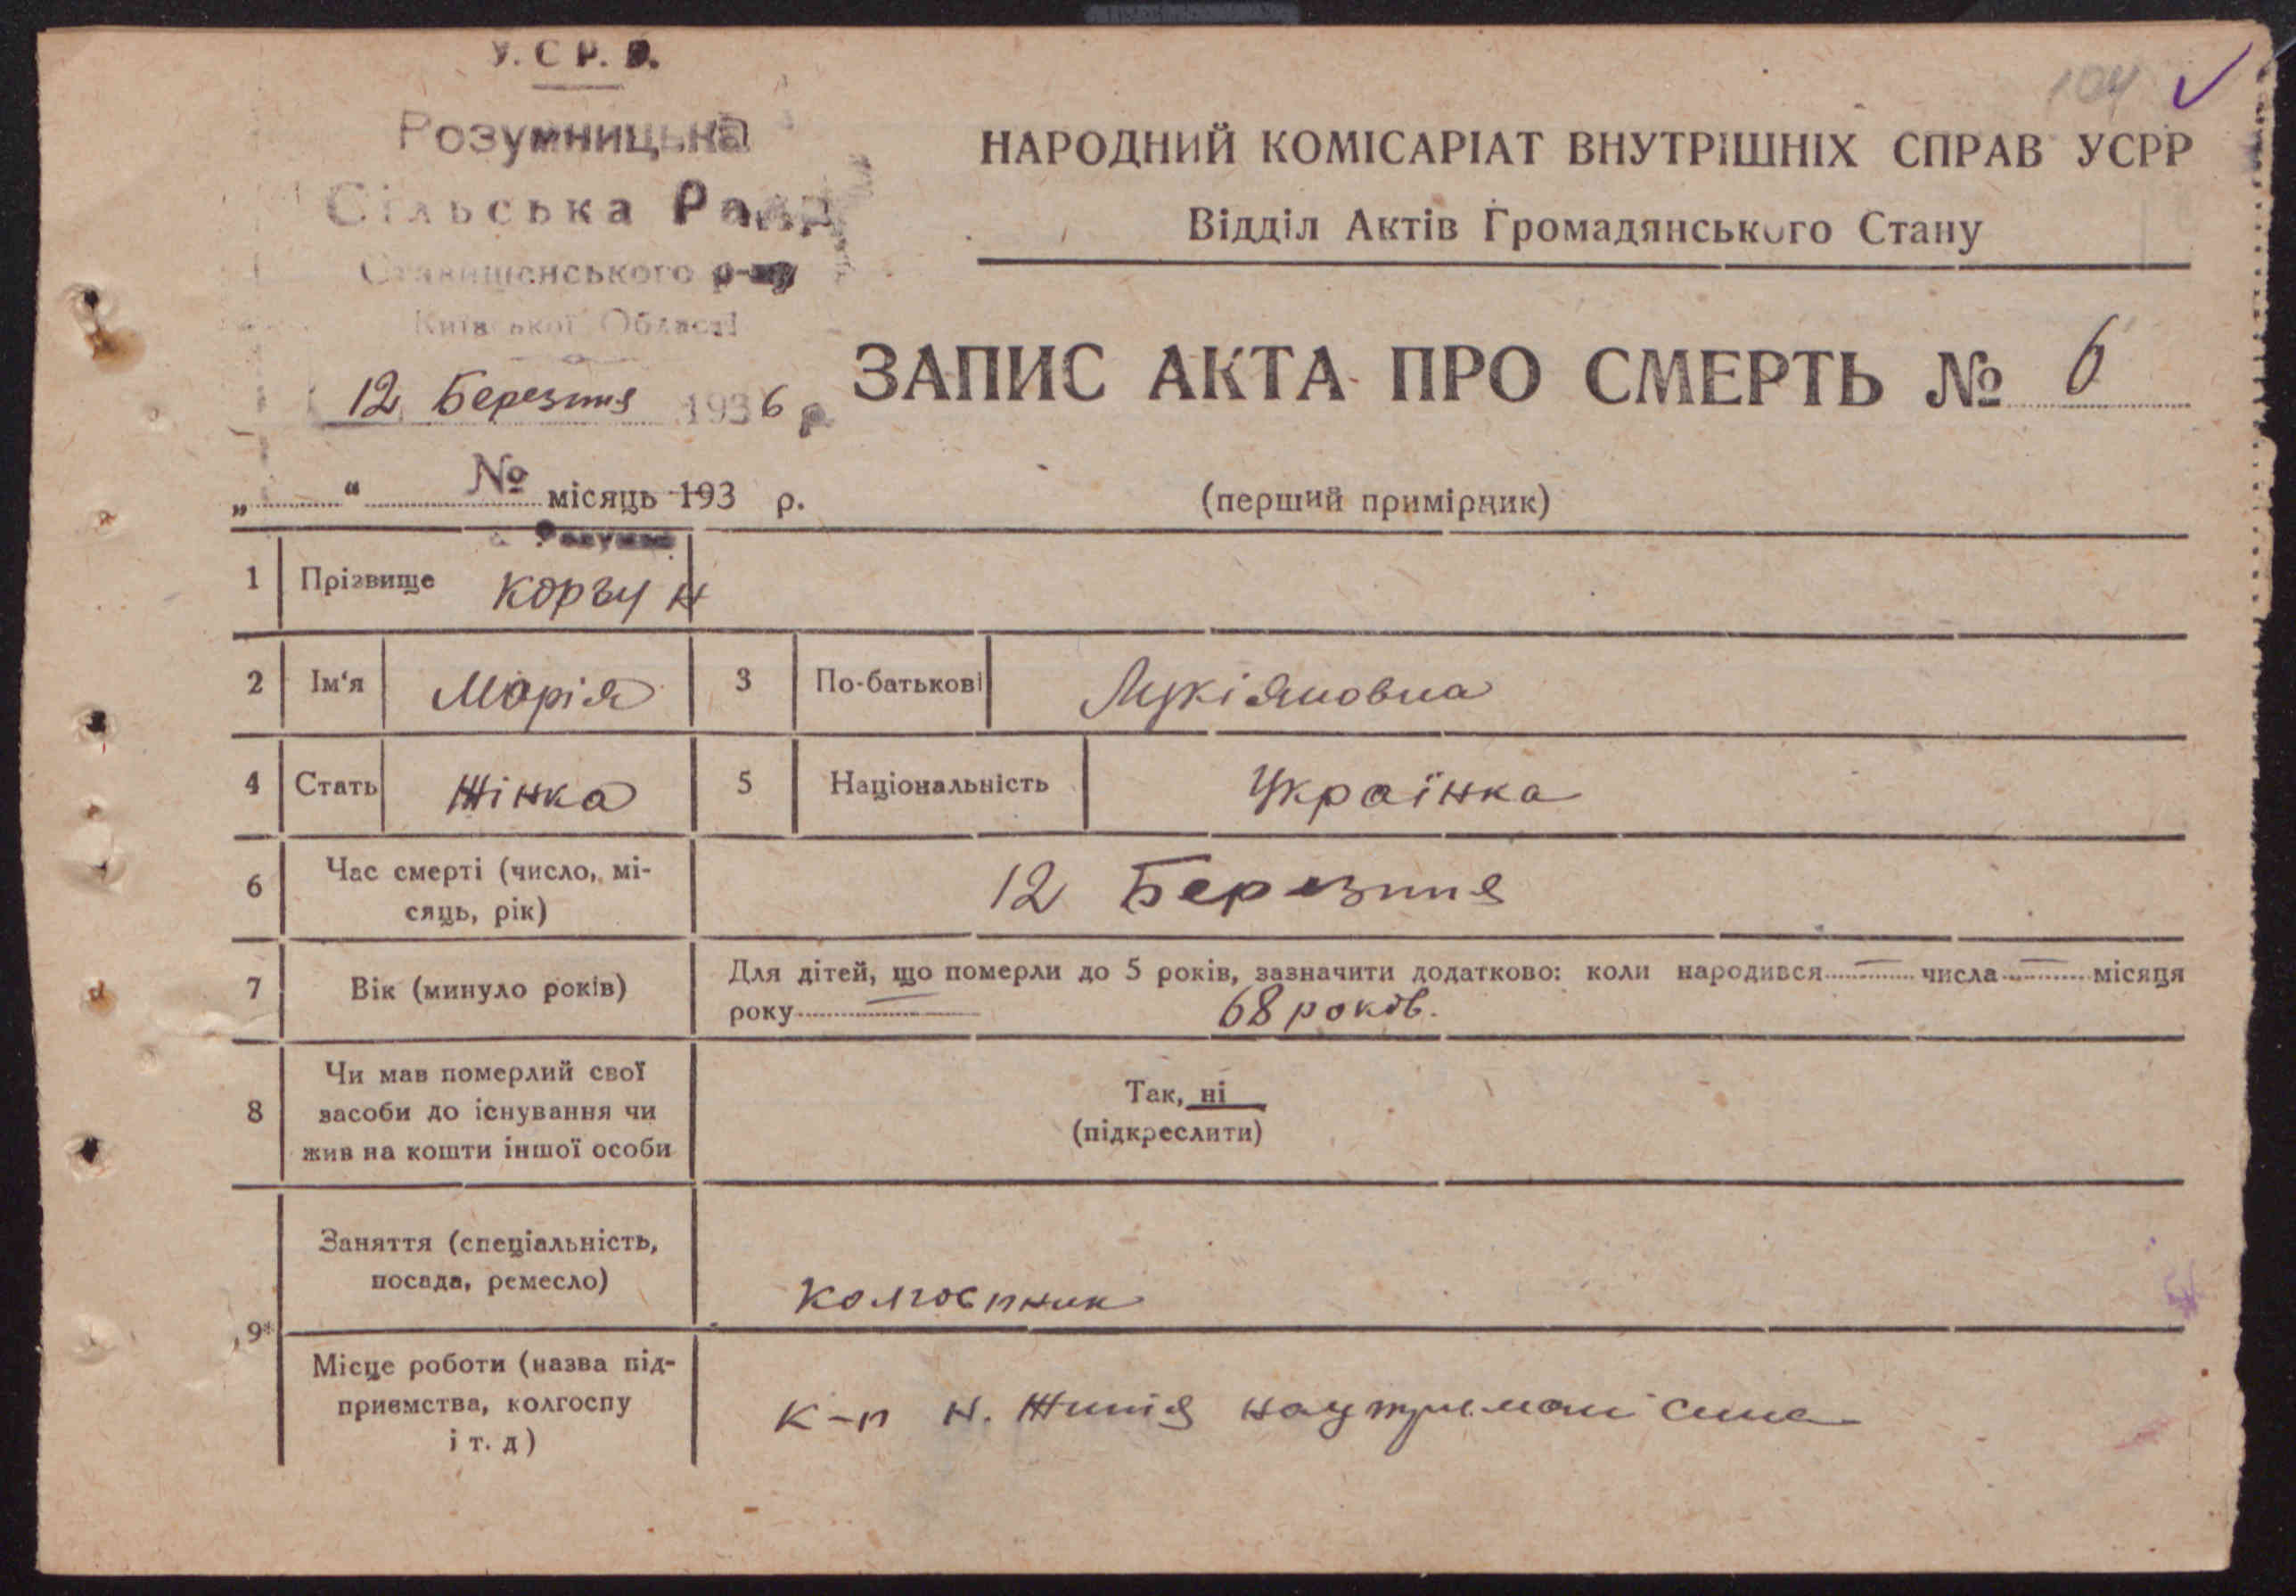 У.С.Р.Р.
104
Розумницька
Сільська Рада
Ставищенського р-ну
Київської Області
12 Березня 1936 р.
НАРОДНИЙ КОМІСАРІАТ ВНУТРІШНІХ СПРАВ УСРР
Відділ Актів Громадянського Стану
ЗАПИС АКТА ПРО СМЕРТЬ № 6
(перший примірник)
№
„ “ місяць 193 р.
1 Прізвище Коргун
2 Ім‘я Марія 3 По-батькові Лукіяновна
4 Стать Жінка 5 Національність Українка
6 Час смерті (число, мі-
сяць, рік)
12 Березня
7 Вік (минуло років)
Для дітей, що померли до 5 років, зазначити додатково: коли народився — числа — місяця
року — 68 років.
8 Чи мав померлий свої
засоби до існування чи
жив на кошти іншої особи
Так, ні
(підкреслити)
9* Заняття (спеціальність,
посада, ремесло)
Колгоспник
Місце роботи (назва під-
приємства, колгоспу
і т. д)
К-п Н. Життя на утримані сина